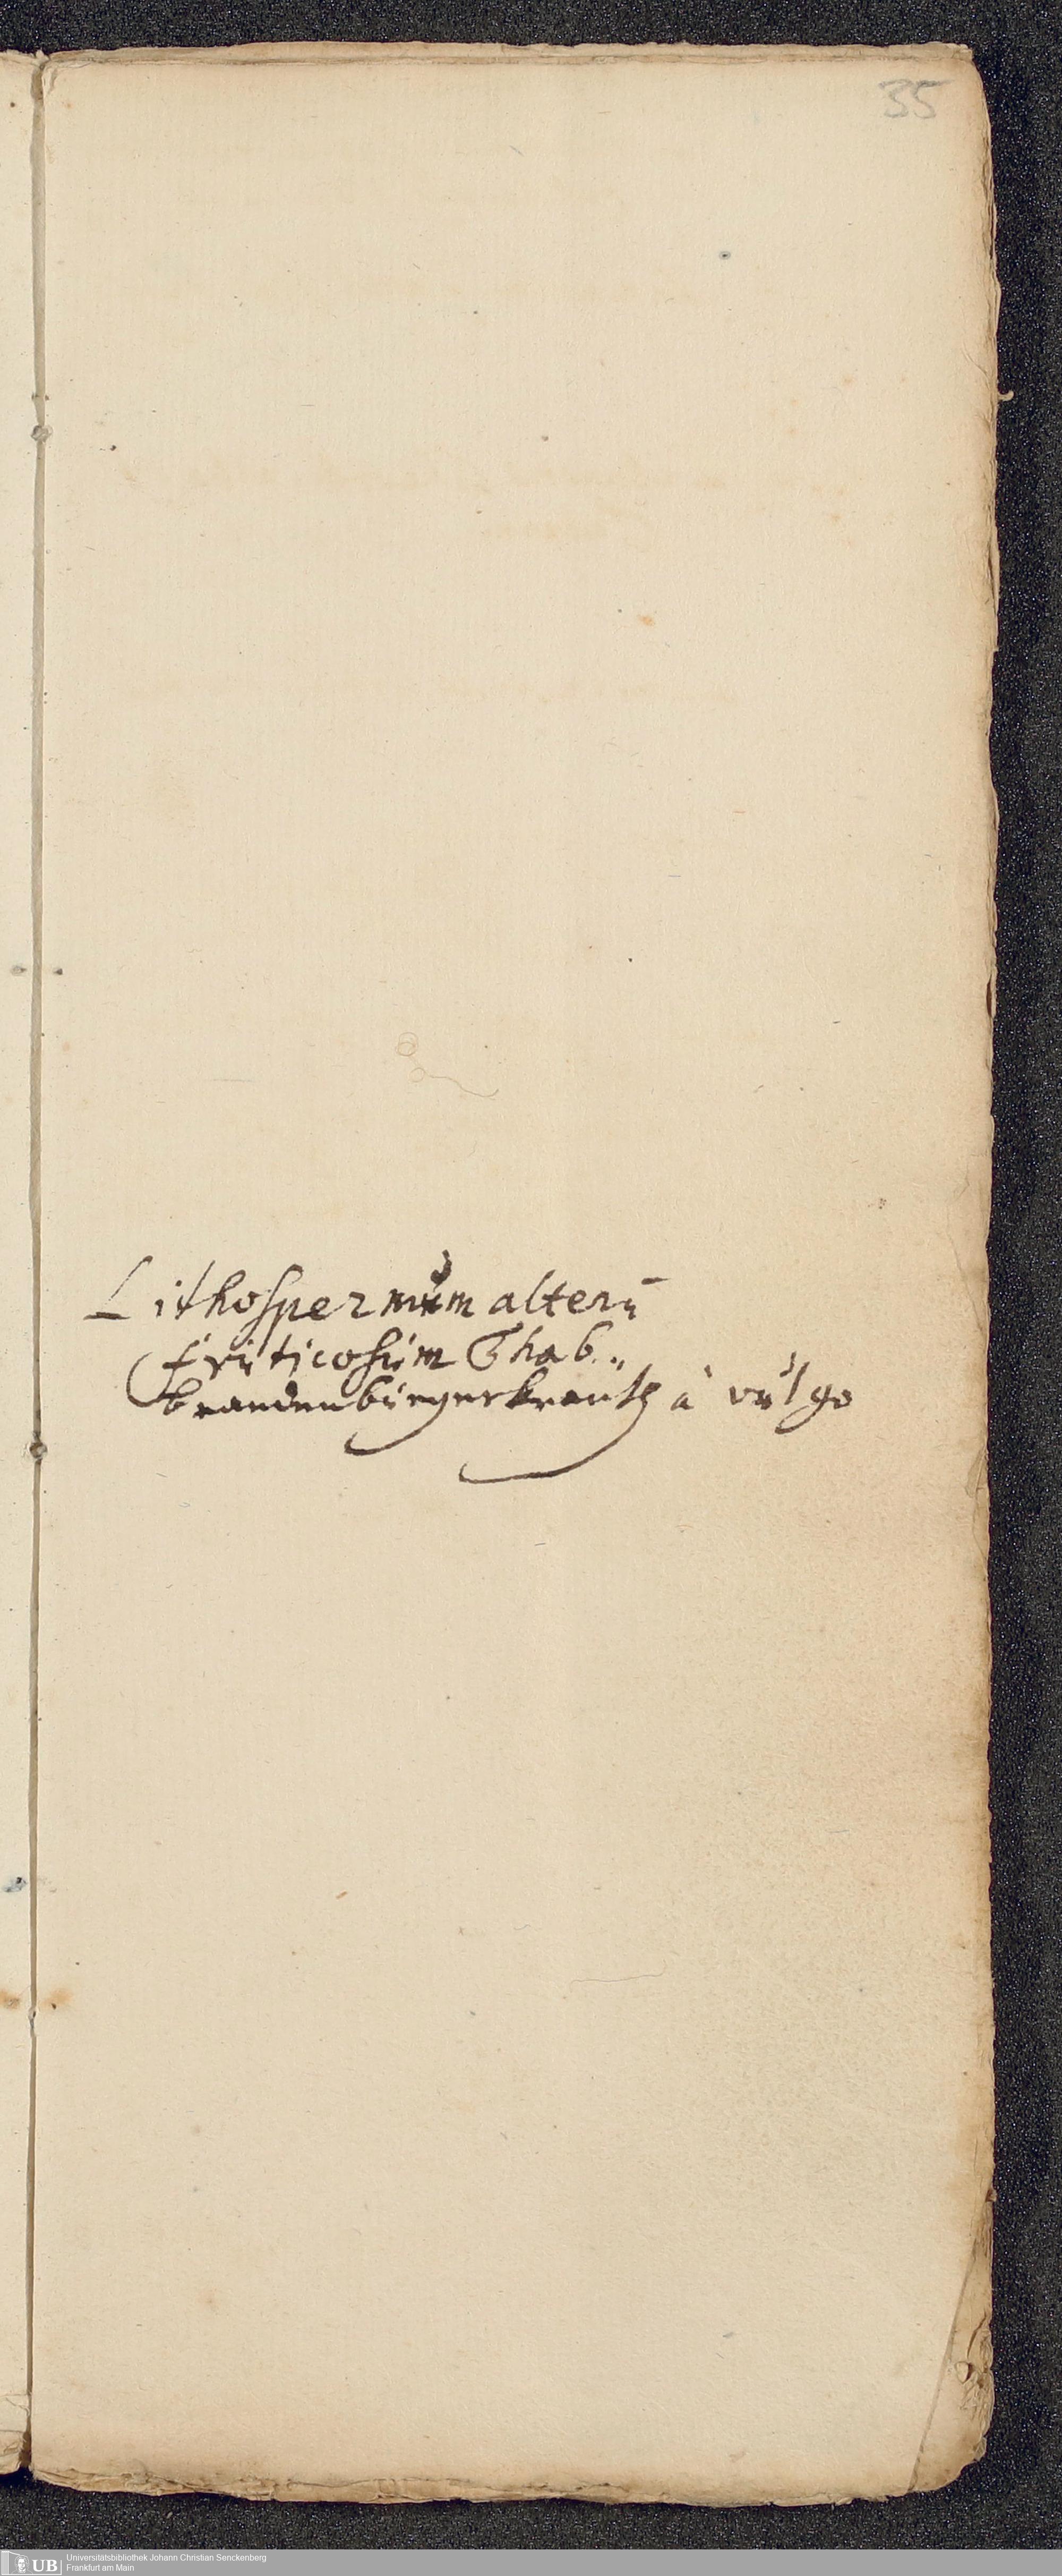 35
Lithospermum alterū
fruticosum Thab..
brandenburgerkrautz à vulgo
UB Universitätsbibliothek Johann Christian Senckenberg
Frankfurt am Main